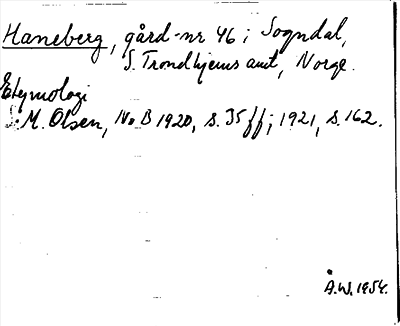 Haneberg, gård-nr 46 i Sogndal,
S. Trondhjems amt, Norge.
Etymologi
: M. Olsen, No B 1920, s. 35 ff; 1921, s. 162.
Å.W. 1954.